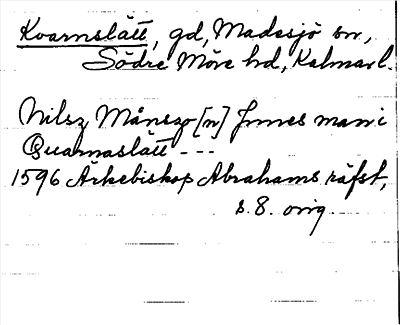 Kvarnslätt, gd, Madesjö sn,
Södre Möre hd, Kalmar l.
Nilsz Månszo [n] Jnnes man i
Quarnaslätt ---
1596 Ärkebiskop Abrahams räfst,
s. 8. orig